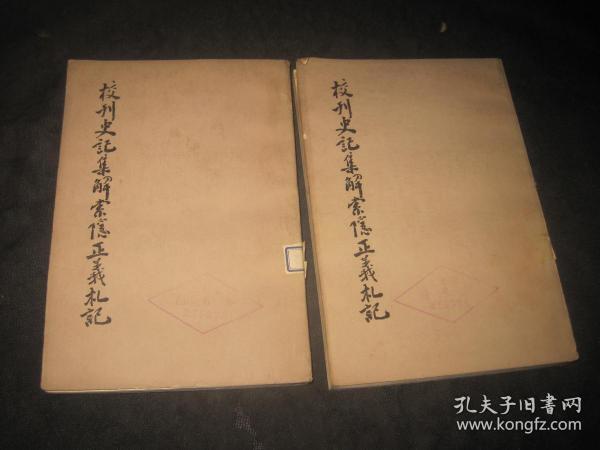 校刊史記集解索隱正義札記
校刊史記集解索隱正義札記
孔夫子旧書网
www.kongfz.com